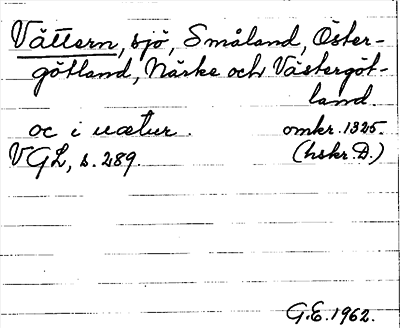 Vättern, sjö, Småland, Öster-
götland, Närke och Västergöt-
land
oc i uætur. omkr. 1325.
VGL, s. 289. (hskr. D.)
G.E. 1962.